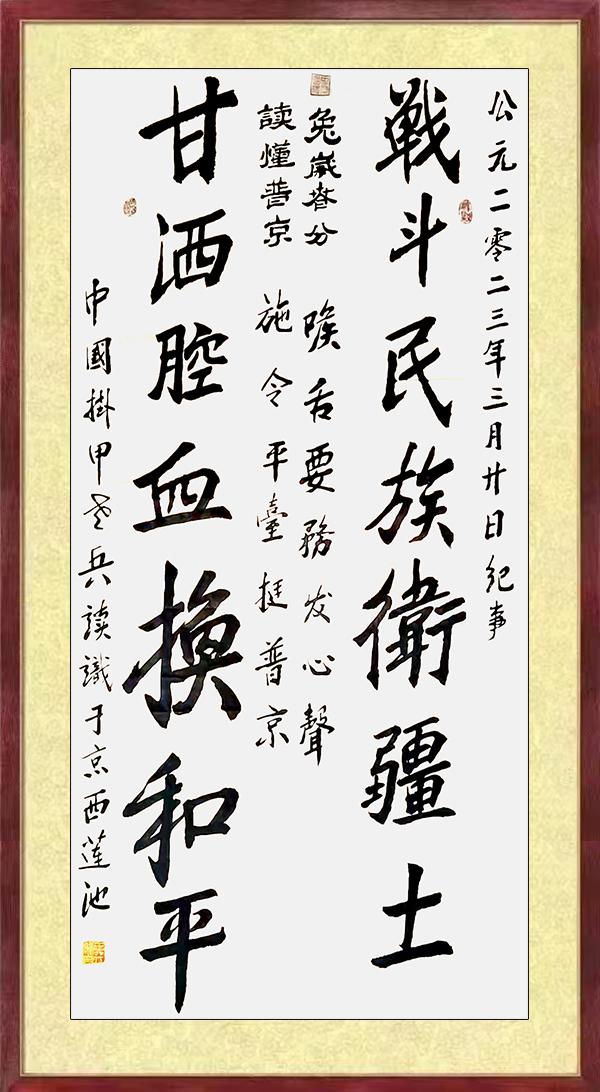 公元二零二三年三月廿日纪事
戦斗民族衛疆土
兔歲春分 喉舌要務发心聲
读懂普京 施令平臺挺普京
甘洒腔血換和平
中國掛甲老兵读識于京西莲池